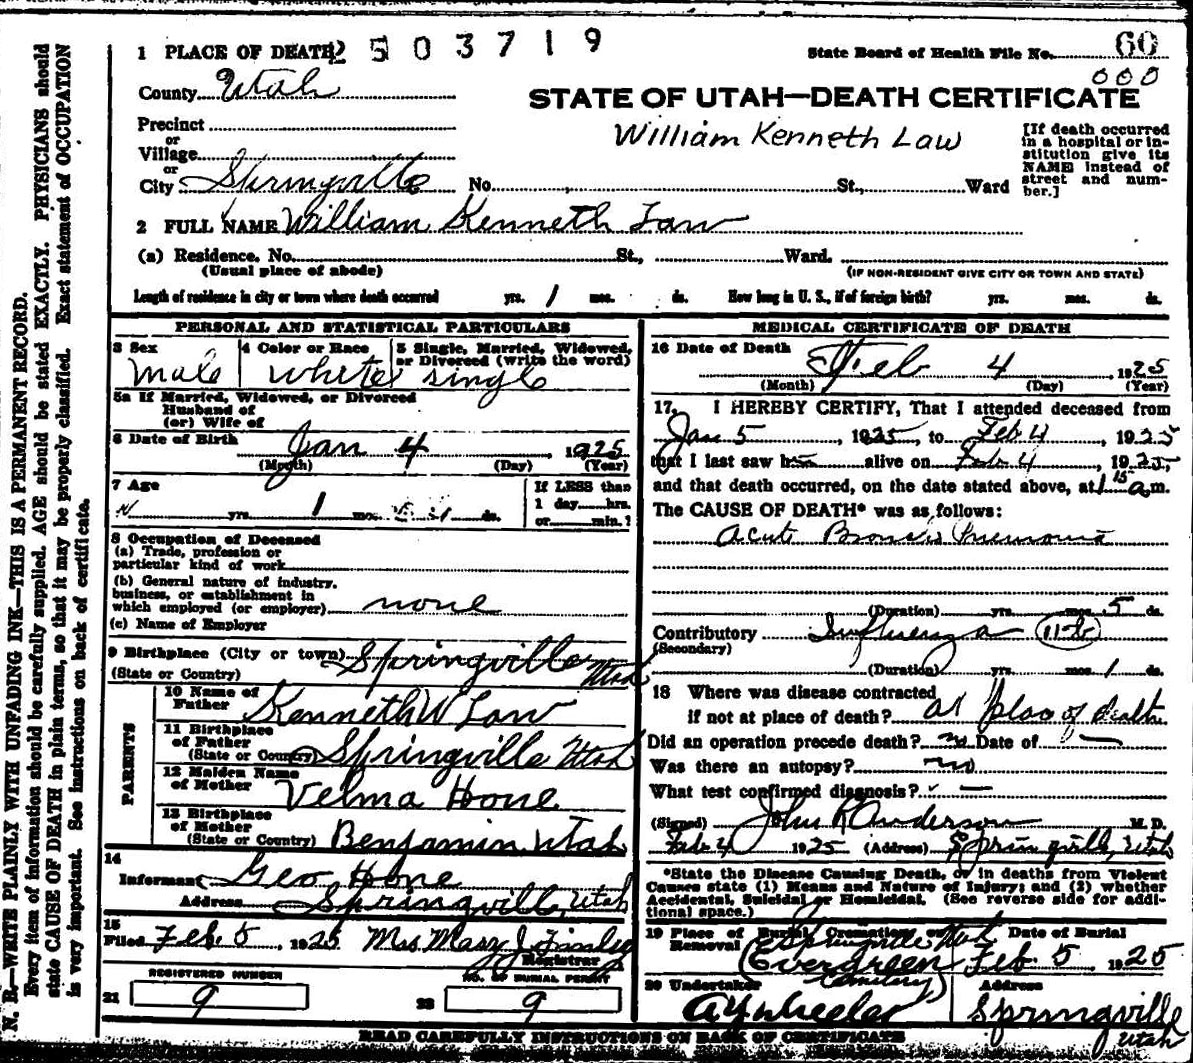 1 PLACE OF DEATH 2 5 0 3 7 1 9
State Board of Health File No. 60
000
County Utah
STATE OF UTAH—DEATH CERTIFICATE
William Kenneth Law
Precinct
or
Village
or
City Springville No. , St., Ward
[If death occurred
in a hospital or in-
stitution give its
NAME instead of
street and num-
ber.]
2 FULL NAME William Kenneth Law
(a) Residence. No. St., Ward.
(Usual place of abode)
(IF NON-RESIDENT GIVE CITY OR TOWN AND STATE)
Length of residence in city or town where death occurred yrs. 1 mos. ds. How long in U. S., if of foreign birth? yrs. mos. ds.
PERSONAL AND STATISTICAL PARTICULARS
3 Sex
male
4 Color or Race
white
5 Single, Married, Widowed,
or Divorced (write the word)
single
5a If Married, Widowed, or Divorced
Husband of
(or) Wife of
6 Date of Birth Jan 4, 1925
(Month) (Day) (Year)
7 Age
yrs. 1 mos. ds.
If LESS than
1 day hrs.
or min.?
8 Occupation of Deceased
(a) Trade, profession or
particular kind of work
(b) General nature of industry,
business, or establishment in
which employed (or employer) none
(c) Name of Employer
9 Birthplace (City or town) Springville
(State or Country) Utah
PARENTS
10 Name of
Father Kenneth W Law
11 Birthplace
of Father
(State or Country) Springville Utah
12 Maiden Name
of Mother Velma Hone
13 Birthplace
of Mother
(State or Country) Benjamin Utah
14
Informant Geo Hone
Address Springville, Utah
15
Filed Feb. 5, 1925 Mrs Mary J.
Registrar
REGISTERED NUMBER
21 9
NO. OF BURIAL PERMIT
22 9
MEDICAL CERTIFICATE OF DEATH
16 Date of Death Feb 4, 1925
(Month) (Day) (Year)
17. I HEREBY CERTIFY, That I attended deceased from
Jan 5, 1925, to Feb 4, 1925
that I last saw him alive on Feb 4, 1925,
and that death occurred, on the date stated above, at 1 15 a m.
The CAUSE OF DEATH* was as follows:
Acute Broncho Pneumonia
(Duration) yrs. mos. 5 ds.
Contributory Influenza
(Secondary)
(Duration) yrs. mos. 1 ds.
18 Where was disease contracted
if not at place of death? at place of death
Did an operation precede death? no Date of —
Was there an autopsy? no
What test confirmed diagnosis? —
(Signed) John R Anderson M. D.
Feb 4 1925 (Address) Springville, Utah
*State the Disease Causing Death, or in deaths from Violent
Causes state (1) Means and Nature of Injury; and (2) whether
Accidental, Suicidal or Homicidal. (See reverse side for addi-
tional space.)
19 Place of Burial, Cremation, or
Removal Springville Utah
(Evergreen Cemetery)
Date of Burial
Feb 5 1925
20 Undertaker
A Y Wheeler
Address
Springville
Utah
READ CAREFULLY INSTRUCTIONS ON BACK OF CERTIFICATE
N. B.—WRITE PLAINLY WITH UNFADING INK—THIS IS A PERMANENT RECORD.
Every item of information should be carefully supplied. AGE should be stated EXACTLY. PHYSICIANS should
state CAUSE OF DEATH in plain terms, so that it may be properly classified. Exact statement of OCCUPATION
is very important. See instructions on back of certificate.